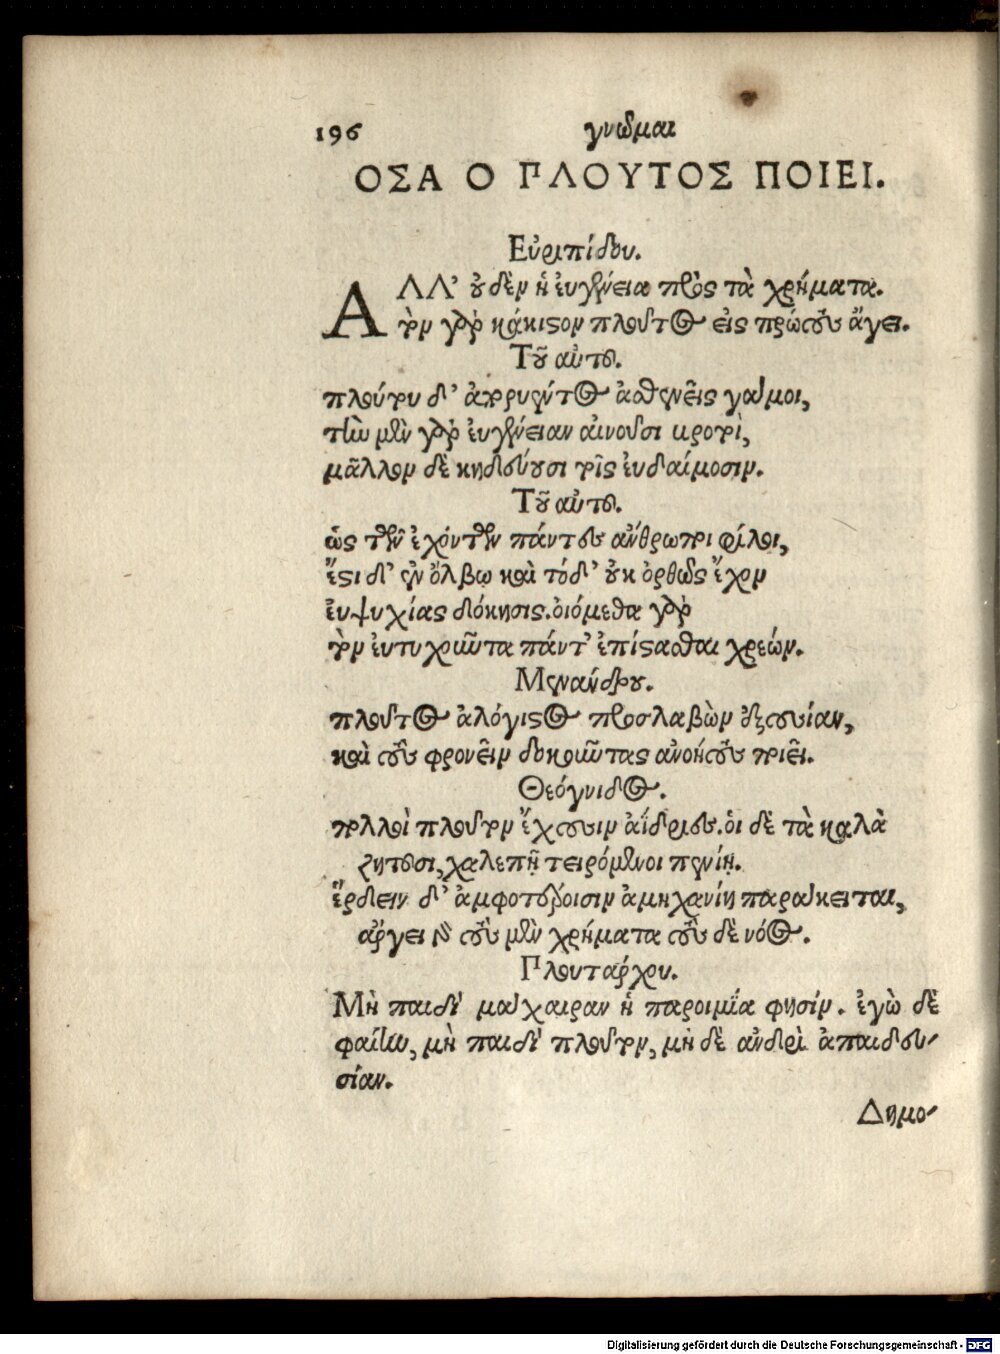 196 γνῶμαι
ΟΣΑ Ο ΠΛΟΥΤΟΣ ΠΟΙΕΙ.
Εὐριπίδου.
ΑΛΛ’ οὐδὲν ἡ ἐυγένεια πρὸς τὰ χρήματα.
τὸν γὰρ κάκιστον πλοῦτος εἰς πρώτους ἄγει.
Τοῦ αὐτοῦ.
πλούτου δ’ ἀπορρυέντος ἀσθενεῖς γάμοι,
τὴν μὲν γὰρ ἐυγένειαν αἰνοῦσι βροτοὶ,
μᾶλλον δὲ κηδεύουσι τοῖς ἐυδαίμοσιν.
Τοῦ αὐτοῦ.
ὡς τῶν ἐχόντων πάντες ἄνθρωποι φίλοι,
ἔστι δ’ ἐν ὄλβῳ καὶ τόδ’ οὐκ ὀρθῶς ἔχον
ἐυψυχίας δόκησις. οἰόμεθα γὰρ
τὸν ἐυτυχοῦντα πάντ’ ἐπίστασθαι χρεών.
Μενάνδρου.
πλοῦτος ἀλόγιστος προσλαβὼν ἐξουσίαν,
καὶ τοὺς φρονεῖν δοκοῦντας ἀνοήτους ποιεῖ.
Θεόγνιδος.
πολλοὶ πλοῦτον ἔχουσιν ἀΐδριες. οἱ δὲ τὰ καλὰ
ζητοῦσι, χαλεπῇ τειρόμενοι πενίῃ.
ἔρδειν δ’ ἀμφοτέροισιν ἀμηχανίη παράκειται,
εἴργει γὰρ τοὺς μὲν χρήματα τοὺς δὲ νόος.
Πλουτάρχου.
Μὴ παιδὶ μάχαιραν ἡ παροιμία φησίν. ἐγὼ δὲ
φαίην, μὴ παιδὶ πλοῦτον, μηδὲ ἀνδρὶ ἀπαιδευ-
σίαν.
Δημο-
Digitalisierung gefördert durch die Deutsche Forschungsgemeinschaft - DFG